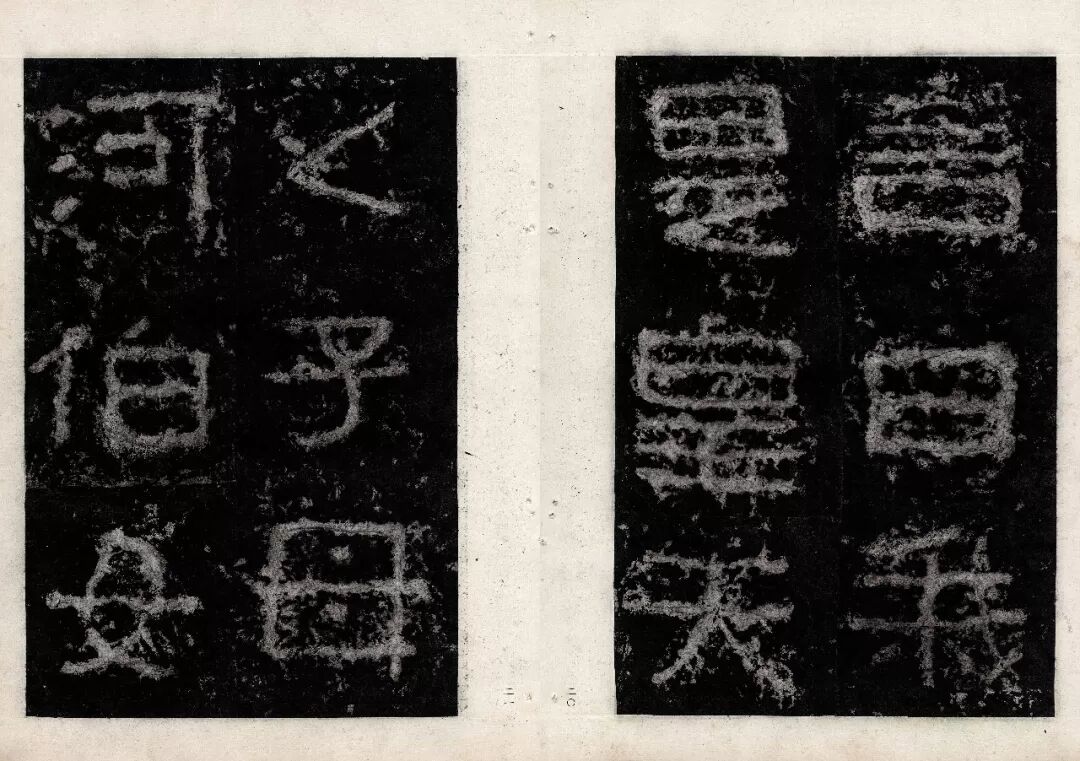 言曰我
是皇天
之子母
河伯女